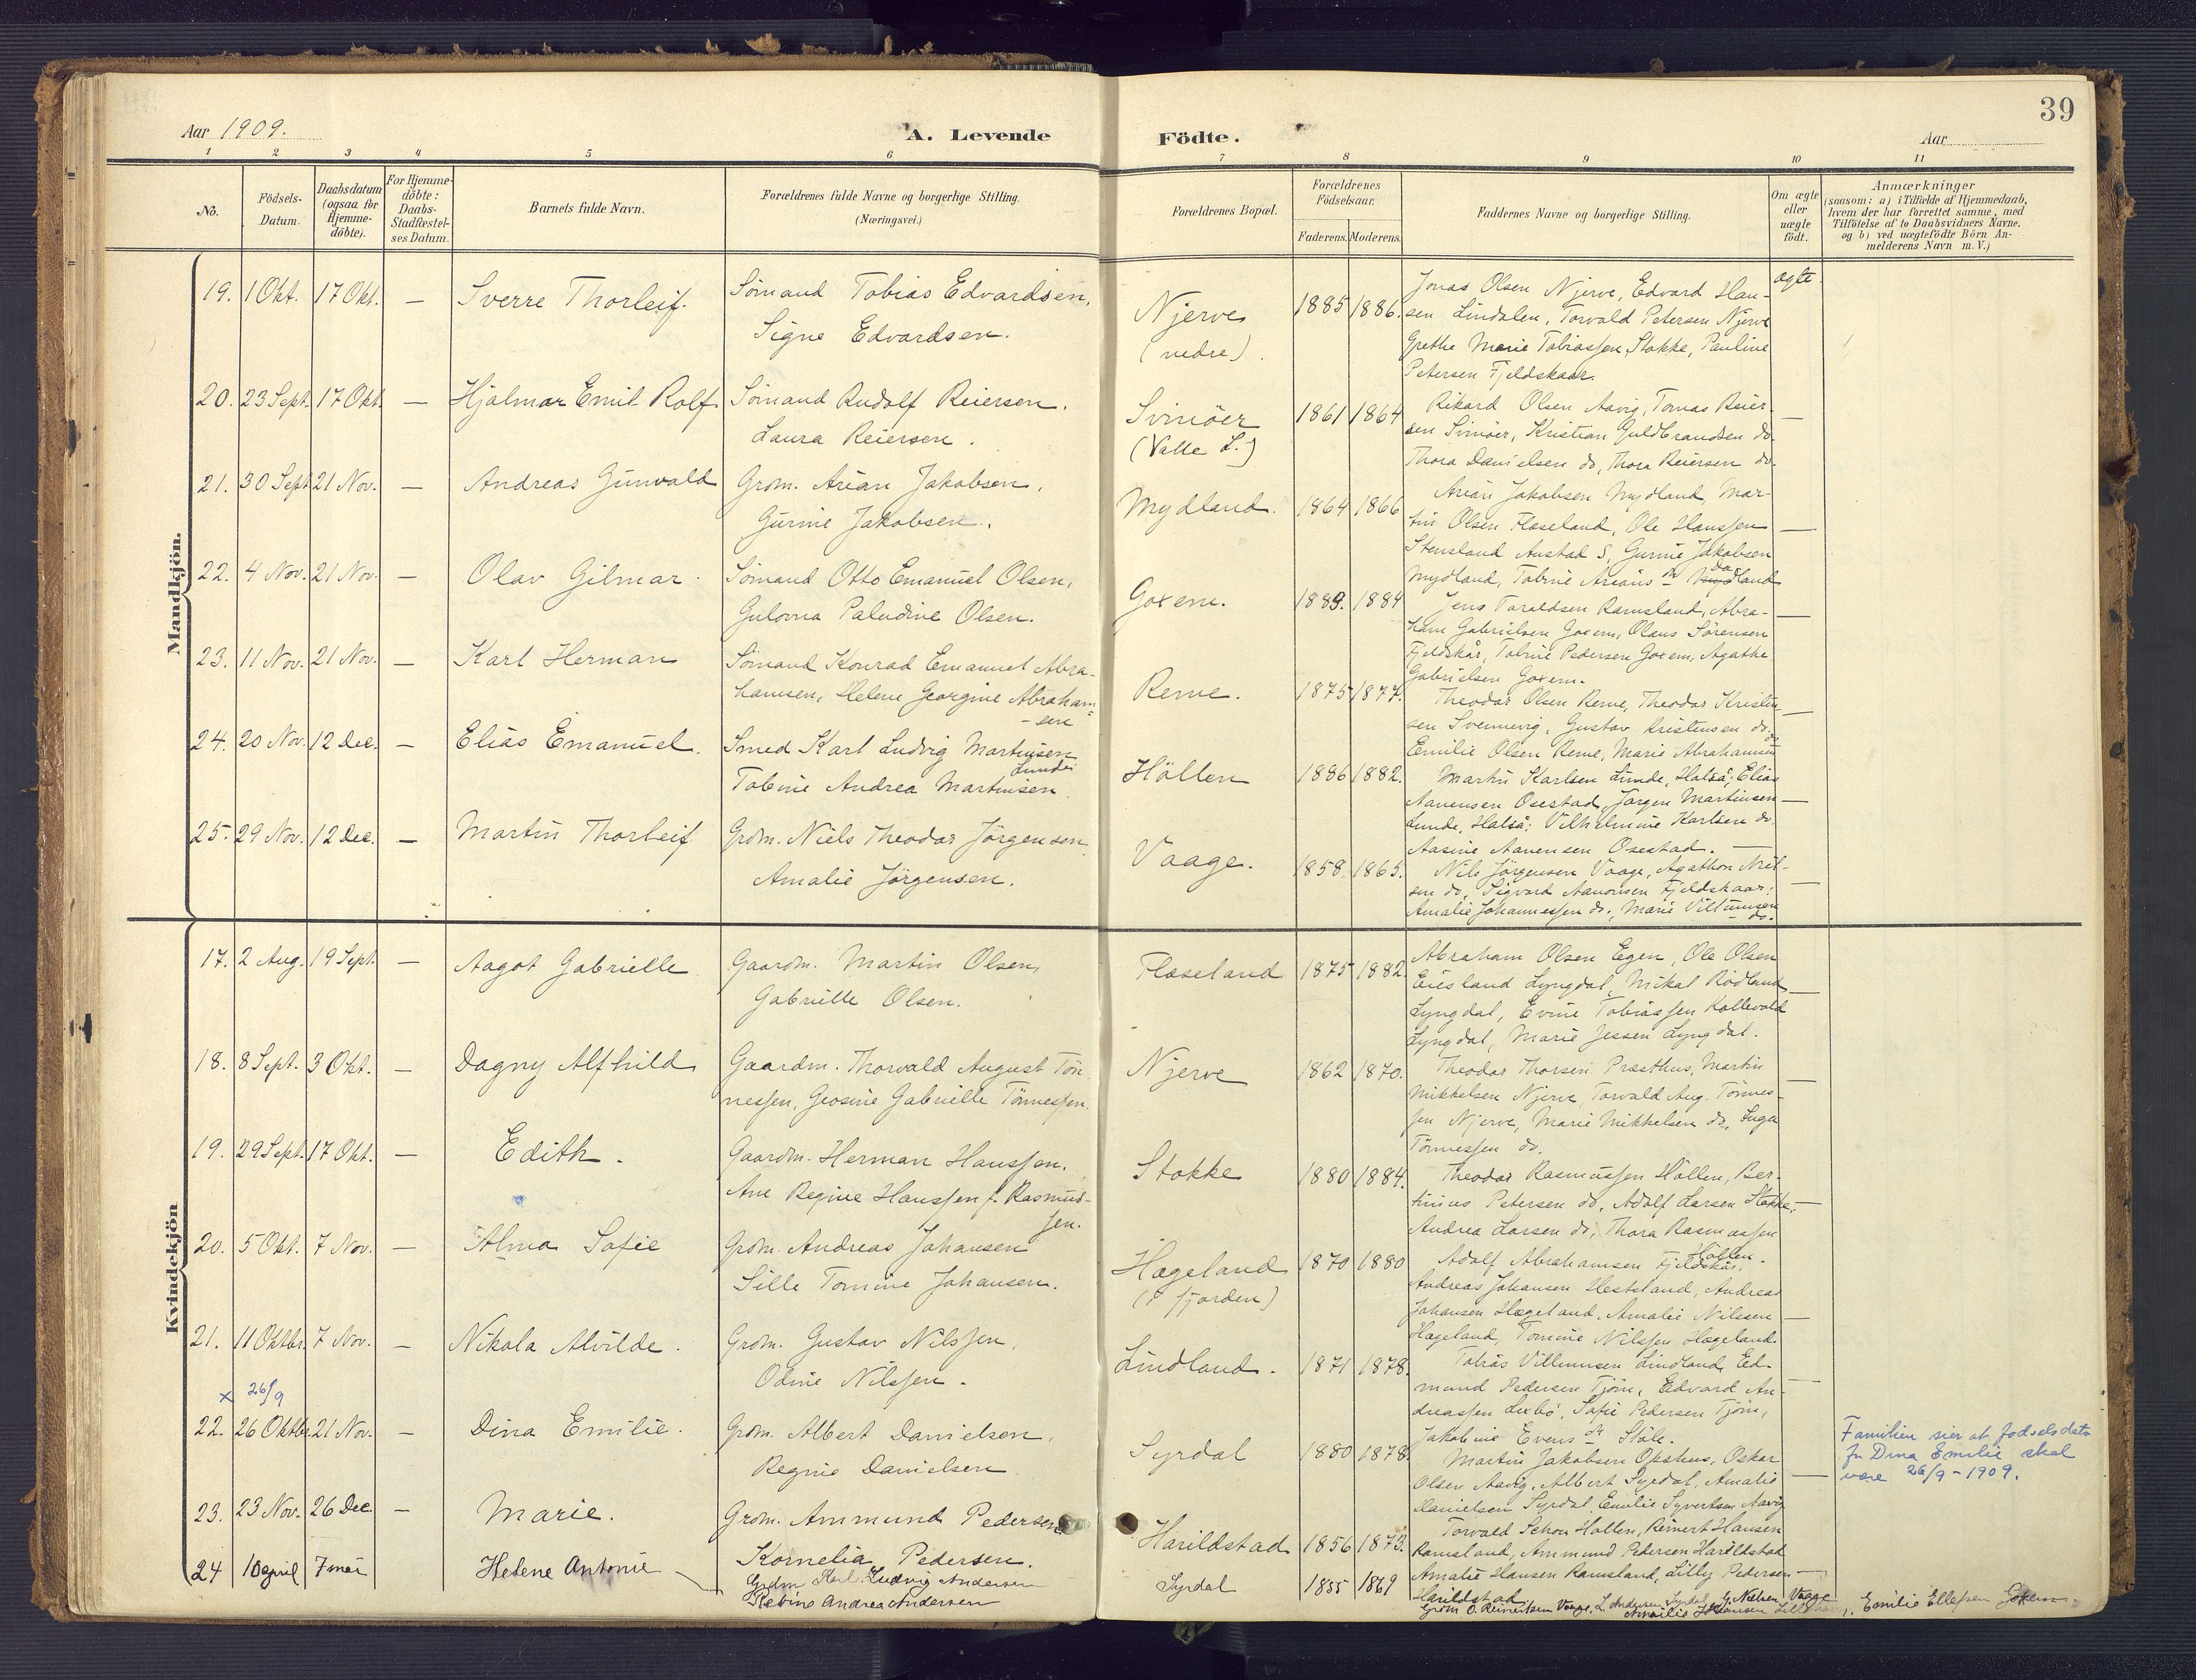 39
Aar 1909.
A. Levende Födte.
Aar
1 2 3 4 5 6 7 8 9 10 11
No.
Födsels-
Datum.
Daabsdatum
(ogsaa for
Hjemme-
döbte).
For Hjemme-
döbte:
Daabs-
Stadfæstel-
ses Datum.
Barnets fulde Navn.
Forældrenes fulde Navne og borgerlige Stilling.
(Næringsvei.)
Forældrenes Bopæl.
Forældrenes
Födselsaar.
Faderens. Moderens.
Faddernes Navne og borgerlige Stilling.
Om ægte
eller
uægte
födt.
Anmærkninger
(saasom: a) i Tilfælde af Hjemmedaab,
hvem der har forrettet samme, med
Tilföielse af to Daabsvidners Navne.
og b) ved uægtefödte Börn An-
melderens Navn m. V.)
Mandkjön.
19. 1 Okt. 17 Okt. — Sverre Thorleif. Sömand Tobias Edvardsen,
Signe Edvardsen.
Njerve
(nedre).
1885 1886.
Jonas Olsen Njerve, Edvard Han-
sen Lindalen, Torvald Petersen Njerve
Grethe Marie Tobiassen Stokke, Pauline
Petersen Fjeldskaar.
ægte.
20. 23 Sept. 17 Okt. — Hjalmar Emil Rolf. Sömand Rudolf Reiersen.
Laura Reiersen.
Svinöer
(Valle S.)
1861 1864
Rikard Olsen Aavig, Tomas Reier-
sen Svinöer, Kristian Guldbrandsen do.
Thora Danielsen do, Thora Reiersen do.
—
21. 30 Sept. 21 Nov. — Andreas Gunvald Grdm. Arian Jakobsen,
Gurine Jakobsen.
Mydland.
1864 1866
Arian Jakobsen Mydland, Mar-
tin Olsen Flæseland, Ole Hanssen
Stensland Austad S, Gurine Jakobsen
Mydland, Tobine Arians dr Dauland
—
22. 4 Nov. 21 Nov. — Olav Gilmar. Sömand Otto Emanuel Olsen,
Gulovna Paludine Olsen.
Goxem.
1889. 1884
Jens Taraldsen Ramsland, Abra-
ham Gabrielsen Goxem, Olaus Sörensen
Fjeldskår, Tobine Pedersen Goxem, Agathe
Gabrielsen Goxem.
—
23. 11 Nov. 21 Nov. — Karl Herman Sömand Konrad Emanuel Abra-
hamsen, Helene Georgine Abraham=
-sen
Reme.
1875 1877.
Theodor Olsen Reme, Theodor Kristen-
sen Svennevig, Gustav Kristensen do.
Emilie Olsen Reme, Marie Abrahamsen do
—
24. 20 Nov. 12 Dec. — Elias Emanuel. Smed Karl Ludvig Martinsen
Lunde
Tobine Andrea Martinsen.
Höllen
1886 1882.
Martin Karlsen Lunde, Halså; Elias
Aanensen Osestad, Jörgen Martinsen
Lunde, Halså; Vilhelmine Karlsen do.
Aasine Aanensen Osestad.
—
25. 29 Nov. 12 Dec. — Martin Thorleif Grdm. Niels Theodor Jörgensen
Amalie Jörgensen.
Vaage.
1858. 1865.
Nils Jörgensen Vaage, Agathon Niel-
sen do, Sigvard Aanonsen Fjeldskaar;
Amalie Johannessen do., Marie Villumsen
do.
—
Kvindekjön
17. 2 Aug. 19 Sept. — Aagot Gabrielle Gaardm. Martin Olsen,
Gabrielle Olsen.
Flæseland
1875 1882
Abraham Olsen Egen, Ole Olsen
Eiesland Lyngdal, Mikal Rödland
Lyngdal, Evine Tobiassen Kollevold
Lyngdal, Marie Jessen Lyngdal.
—
18. 8 Sept. 3 Okt. — Dagny Alfhild Gaardm. Thorvald August Tön-
nessen, Geosine Gabrielle Tönnessen.
Njerve
1862 1870.
Theodor Thorsen Præsthus, Martin
Mikkelsen Njerve, Torvald Aug. Tönnes-
sen Njerve, Marie Mikkelsen do, Inga
Tönnessen do.
—
19. 29 Sept. 17 Okt. — Edith. Gaardm. Herman Hanssen.
Ane Regine Hanssen f. Rasmus-
sen.
Stokke
1880 1884.
Theodor Rasmussen Höllen, Ber-
tinius Petersen do, Adolf Larsen Stokke,
Andrea Larsen do, Thora Rasmussen
Höllen.
—
20. 5 Okt. 7 Nov. — Alma Sofie Grdm. Andreas Johansen
Sille Tomine Johansen.
Hægeland
(i fjorden)
1870 1880
Adolf Abrahamsen Fjeldskår,
Andreas Johansen Hesteland, Andreas
Johansen Hægeland, Amalie Nilssen
Hægeland, Tomine Nilssen Hægeland.
—
21. 11 Oktbr. 7 Nov. — Nikola Alvilde. Grdm. Gustav Nilssen,
Odine Nilssen.
Lindland.
1871 1878.
Tobias Villumsen Lindland, Ed-
mund Pedersen Tjöm, Edvard An-
dreassen Lexbö, Sofie Pedersen Tjöm,
Jakobine Evens dr Ståle.
—
x 26/9
22. 26 Oktbr. 21 Nov. — Dina Emilie. Grdm. Albert Danielsen,
Regine Danielsen
Syrdal
1880 1878.
Martin Jakobsen Opshus, Oskar
Olsen Aavig, Albert Syrdal, Amalie
Danielsen Syrdal, Emilie Syvertsen Aavig
—
Familien sier at fodselsdato
for Dina Emilie skal
være 26/9-1909.
23. 23 Nov. 26 Dec. — Marie. Grdm. Ammund Pedersen
Kornelia Pedersen.
Harildstad
1856 1873.
Torvald Schou Hollen, Reinert Hansen
Ramsland, Ammund Pedersen Harildstad
Amalie Hansen Ramsland, Lilly Pedersen
Harildstad
—
24 10 april 7 mai Helene Antonie Grdm Karl Ludvig Andersen
Rebine Andrea Andersen
Syrdal
1855 1869
Grdm O. Reinertsen Vaage, L. Andersen Syrdal, G. Nielsen Vaage
Amalie Johansen, Emilie Ellefsen Goxem